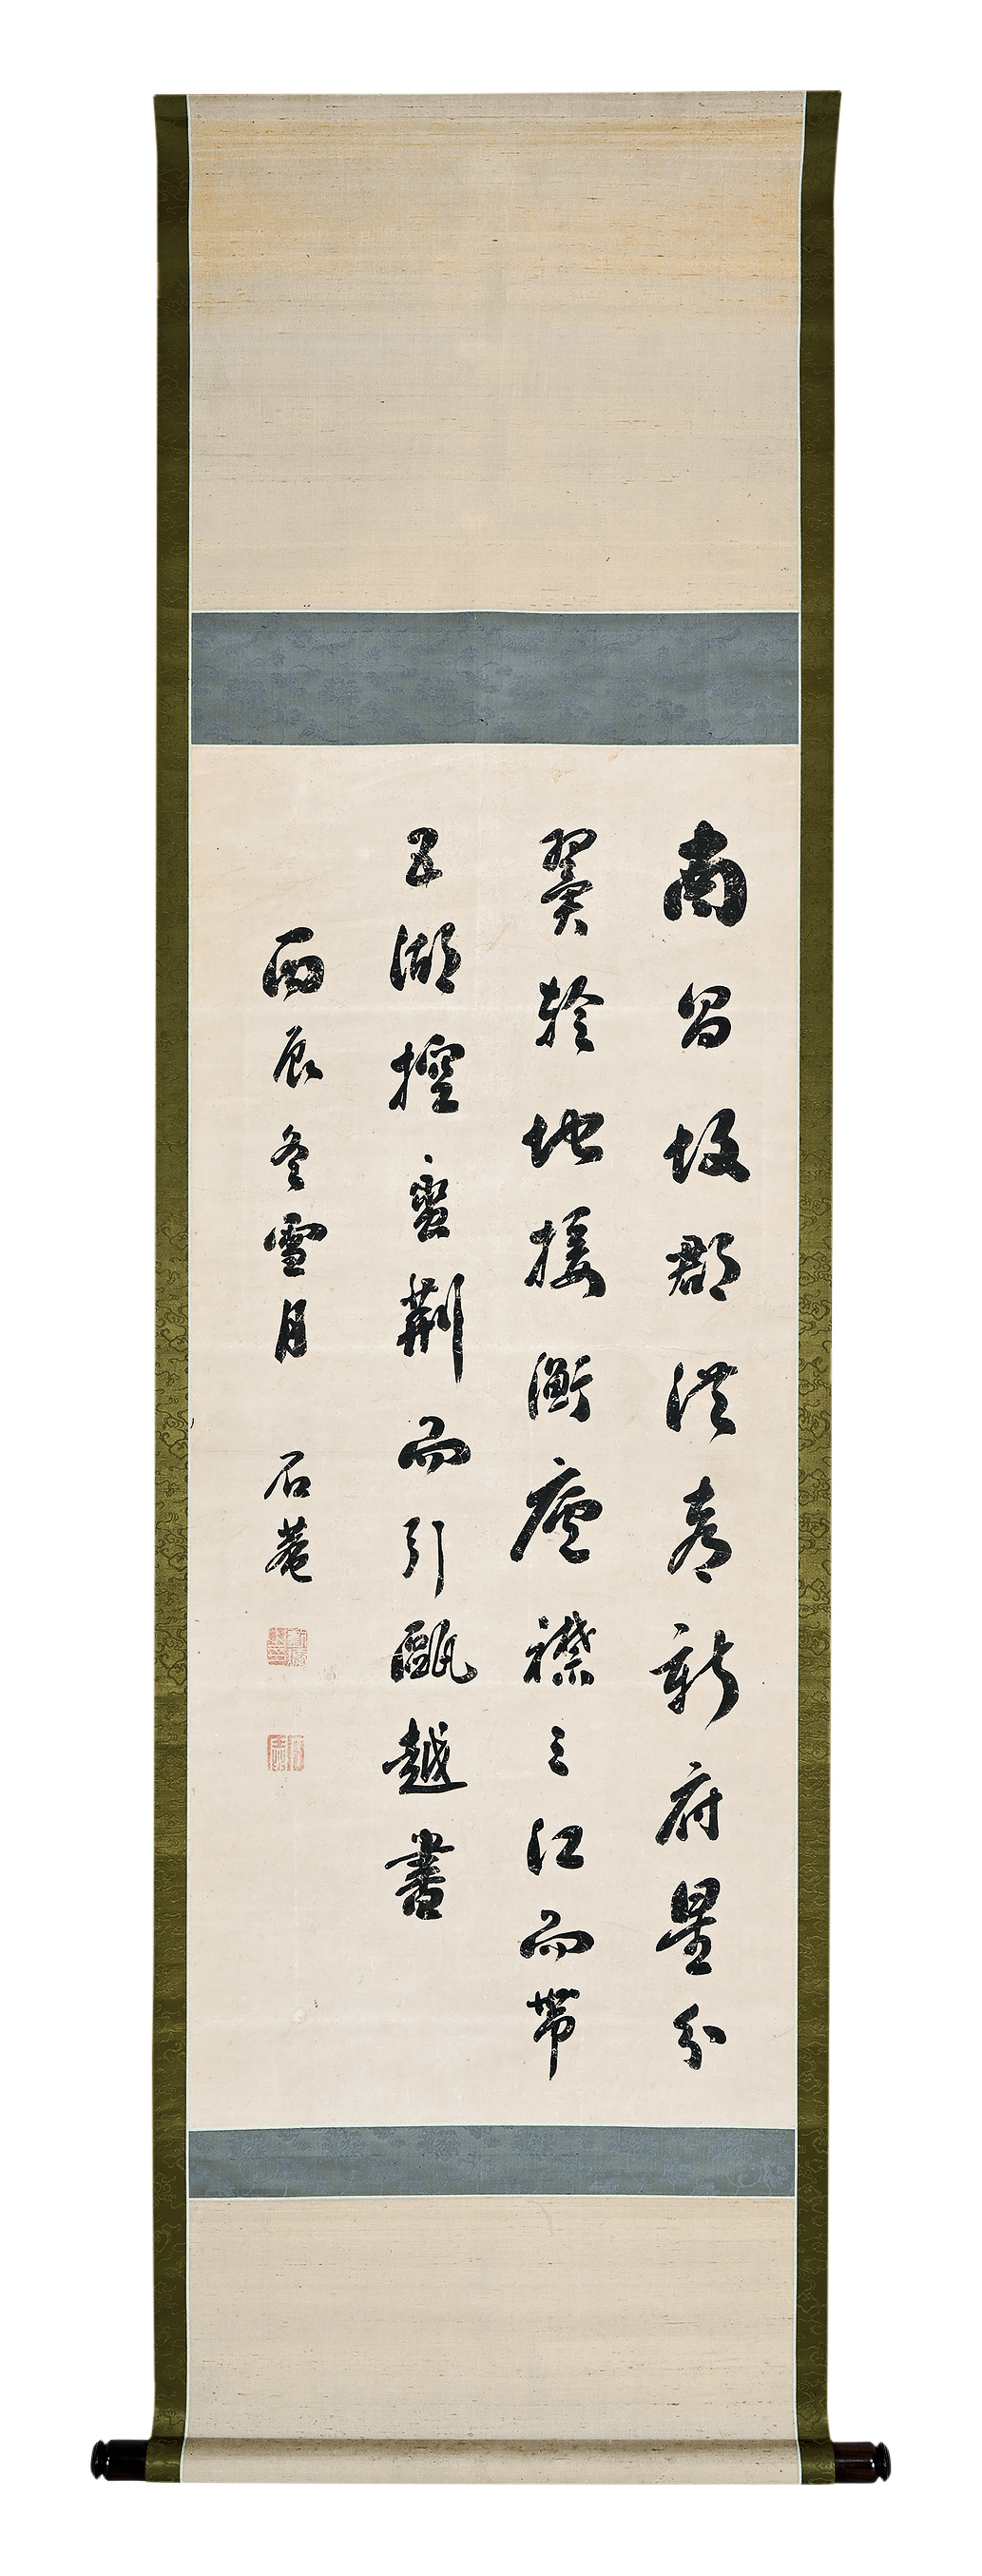 南昌故郡洪都新府星分
翼軫地接衡廬襟三江而帶
五湖控蠻荊而引甌越書
丙辰冬雪月 石菴